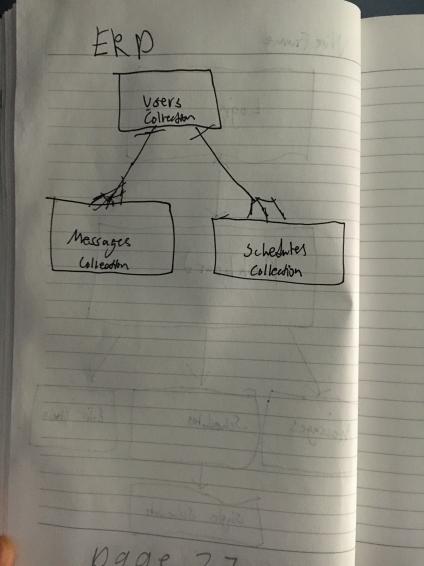 ERD
Users
Collection
Messages
Collection
Schedules
Collection
page 27